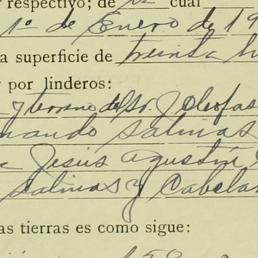 respectivo; de cual
1º de Enero de 19
a superficie de treinta
y por linderos:
y terreno del Sr. J. Cleofas
nando Salinas
Jesús Agustín
Salinas y Cabela
as tierras es como sigue: